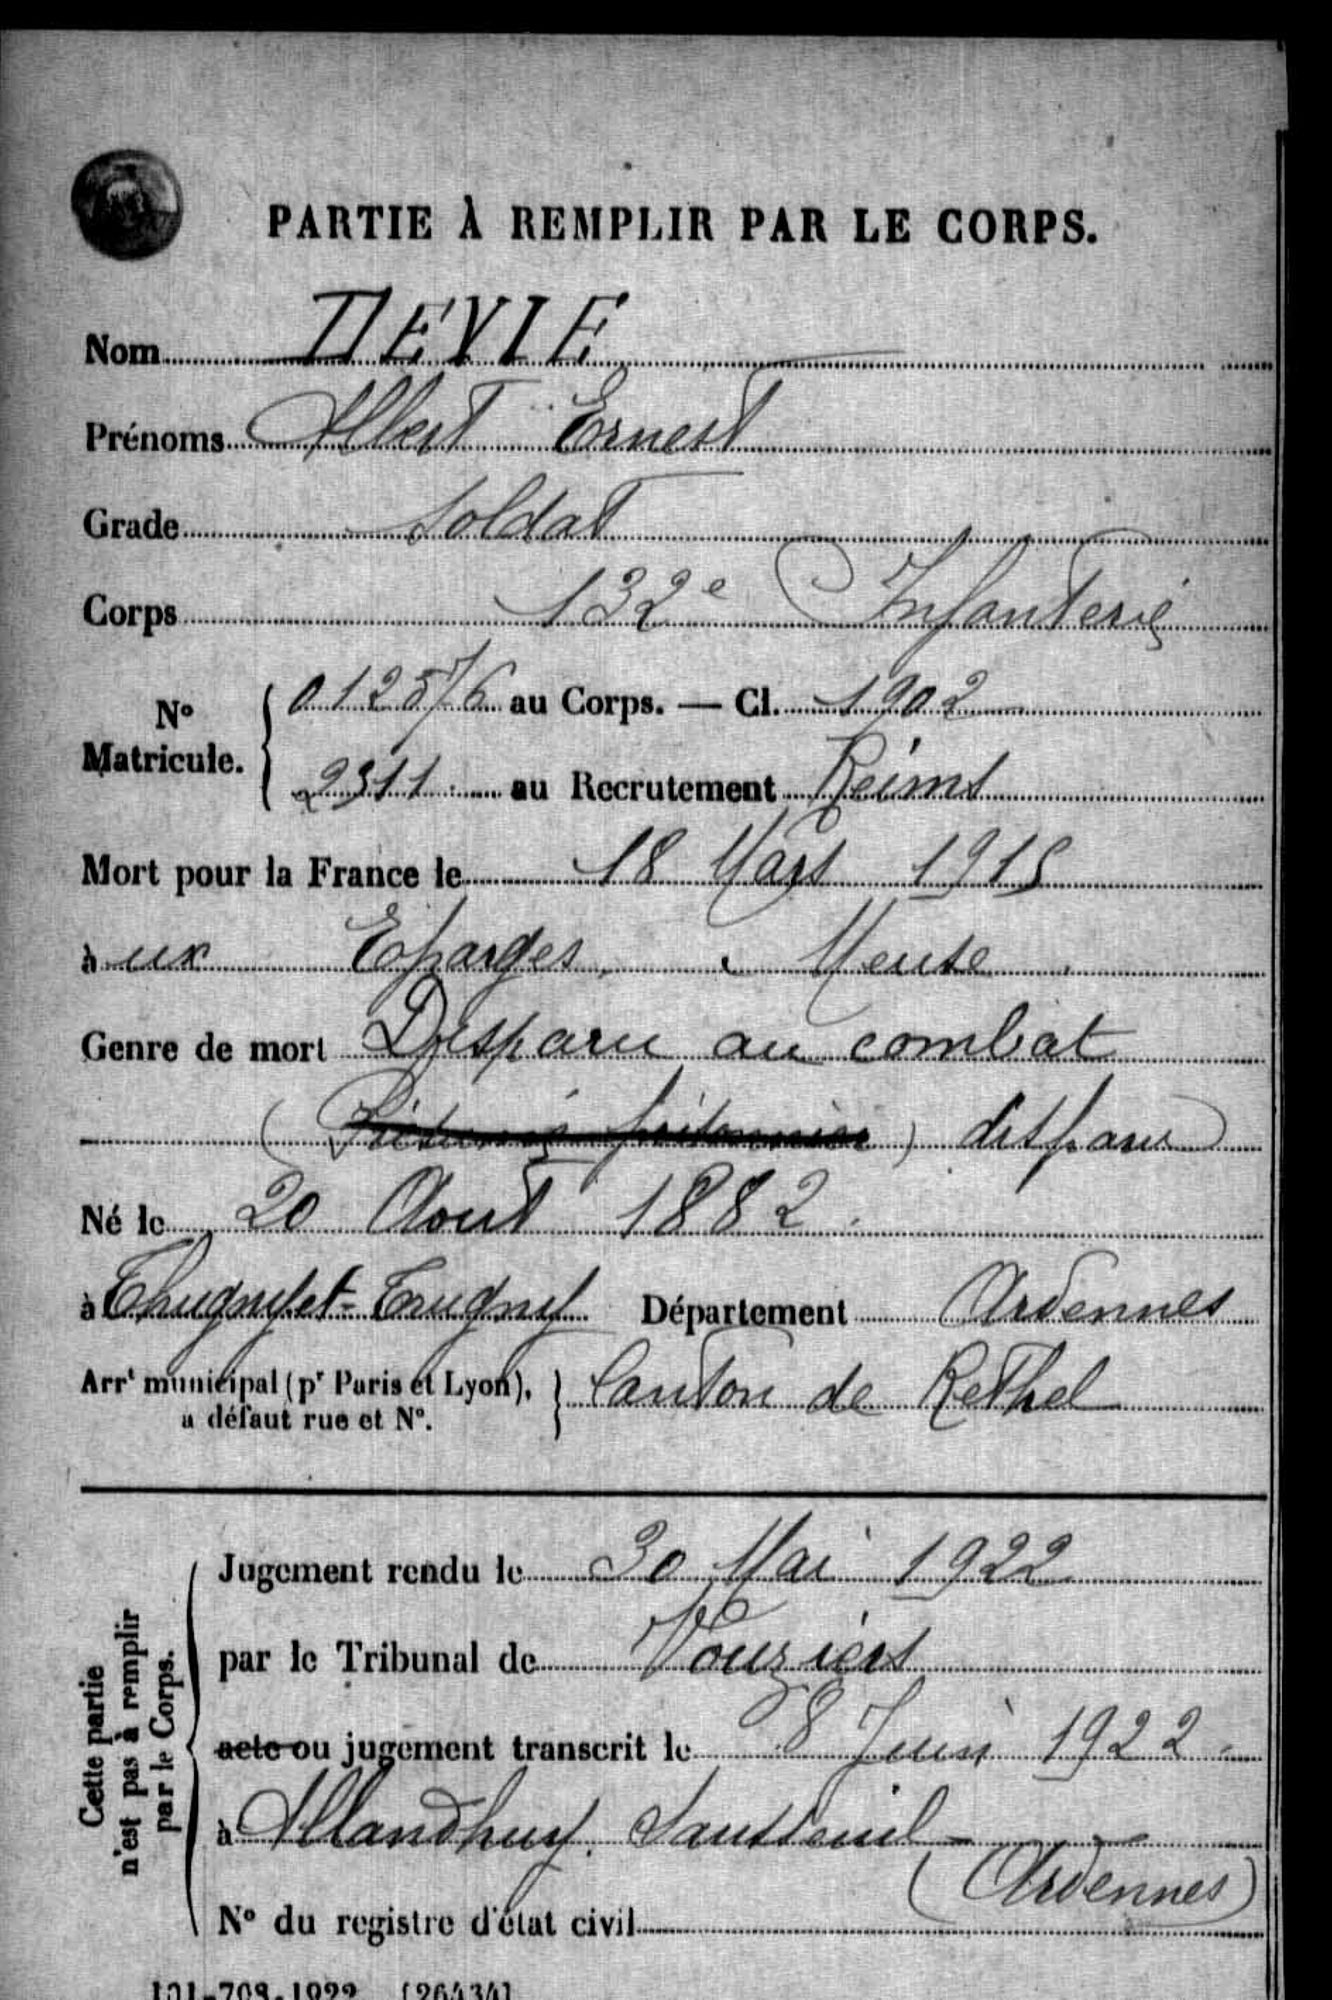 PARTIE À REMPLIR PAR LE CORPS.
Nom DEVIE
Prénoms Albert Ernest
Grade Soldat
Corps 132e Infanterie
No Matricule. 012576 au Corps. — Cl. 1902
2311 au Recrutement Reims
Mort pour la France le 18 Mars 1915
à ux Eparges. Meuse
Genre de mort Disparu au combat
( ) disparu
Né le 20 Aout 1882
à Thugny et Trugny Département Ardennes
Arrt municipal (pr Paris et Lyon), à défaut rue et No. } Canton de Rethel
Cette partie n'est pas à remplir par le Corps.
Jugement rendu le 30 Mai 1922
par le Tribunal de Vouziers
acte ou jugement transcrit le 8 Juin 1922
à Allandhuy Sausseuil
(Ardennes)
No du registre d'état civil
101-708-1922. [26434]